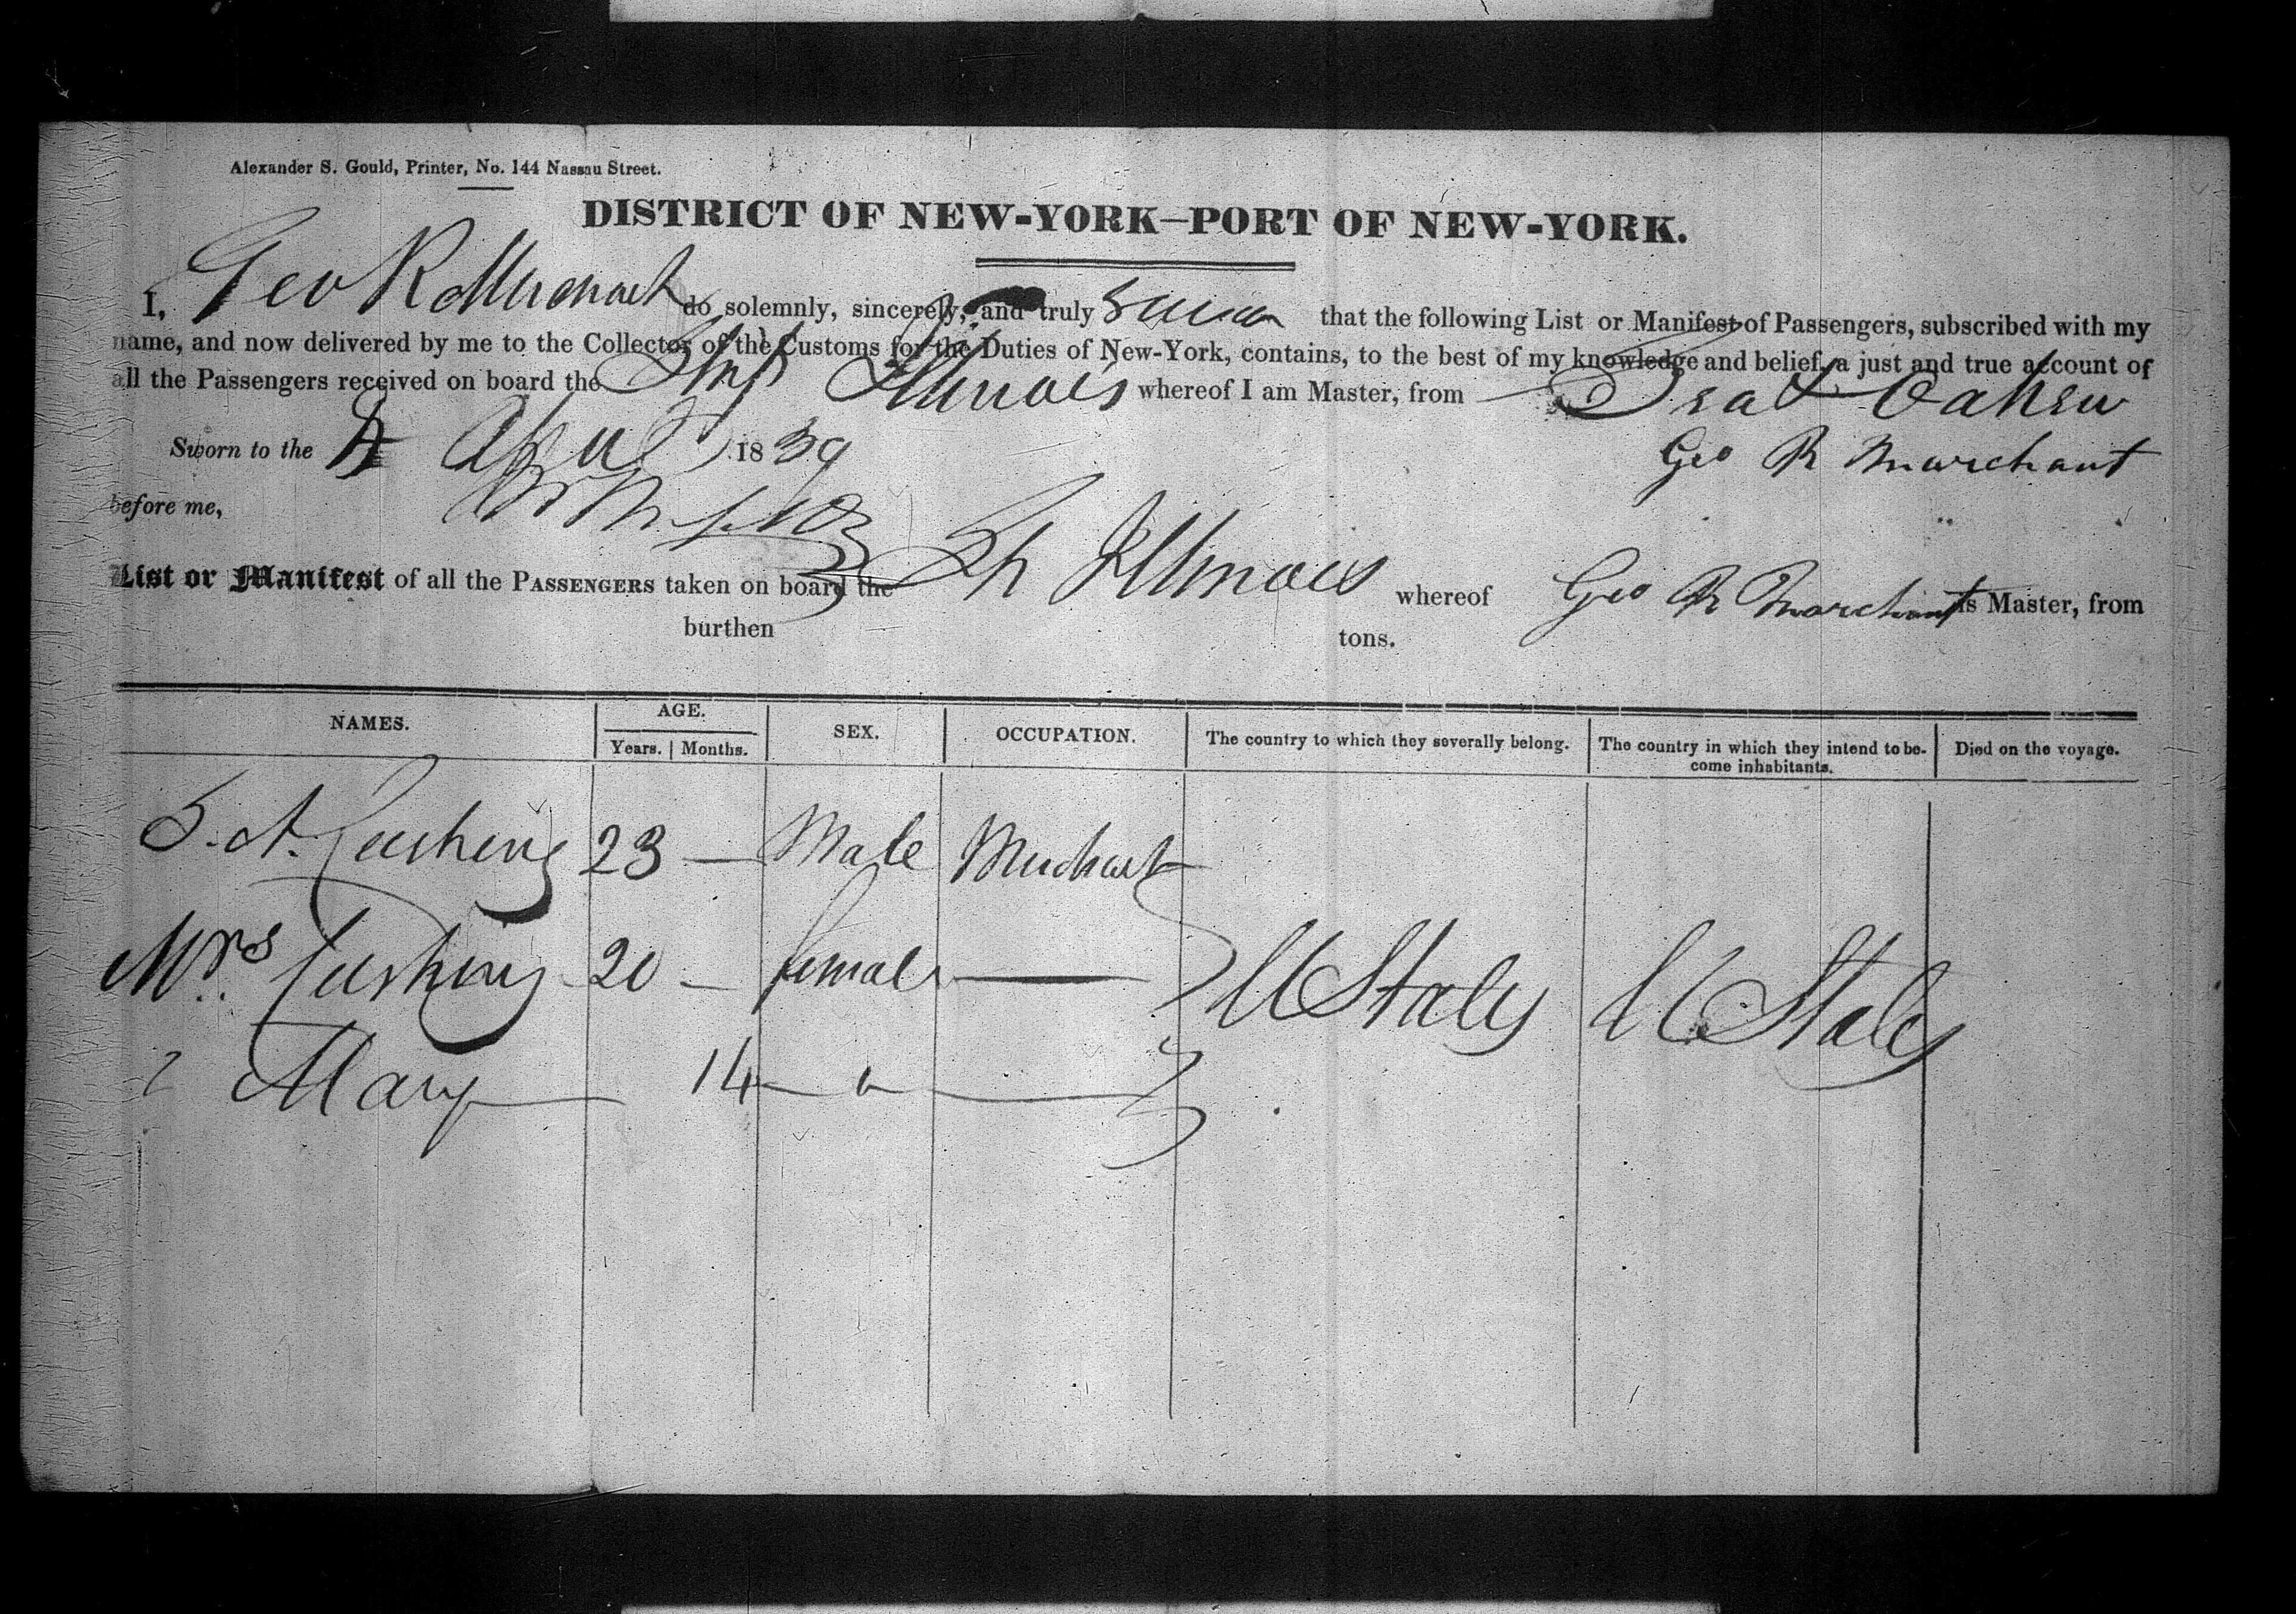 Alexander S. Gould, Printer, No. 144 Nassau Street.
DISTRICT OF NEW-YORK—PORT OF NEW-YORK.
I, Geo R Merchant do solemnly, sincerely, and truly Swear that the following List or Manifest of Passengers, subscribed with my
name, and now delivered by me to the Collector of the Customs for the Duties of New-York, contains, to the best of my knowledge and belief, a just and true account of
all the Passengers received on board the Ship Illinois whereof I am Master, from
Sworn to the 4 April 1839
Geo R Marchant
before me,
List or Manifest of all the PASSENGERS taken on board the Sh Illinois whereof Geo R Marchant is Master, from
burthen tons.
NAMES. AGE. SEX. OCCUPATION. The country to which they severally belong. The country in which they intend to be- Died on the voyage.
Years. Months. come inhabitants.
S. A. Cushing 23 — Male Merchant
Mrs. Cushing 20 — female — U States U States
Mary 14 —